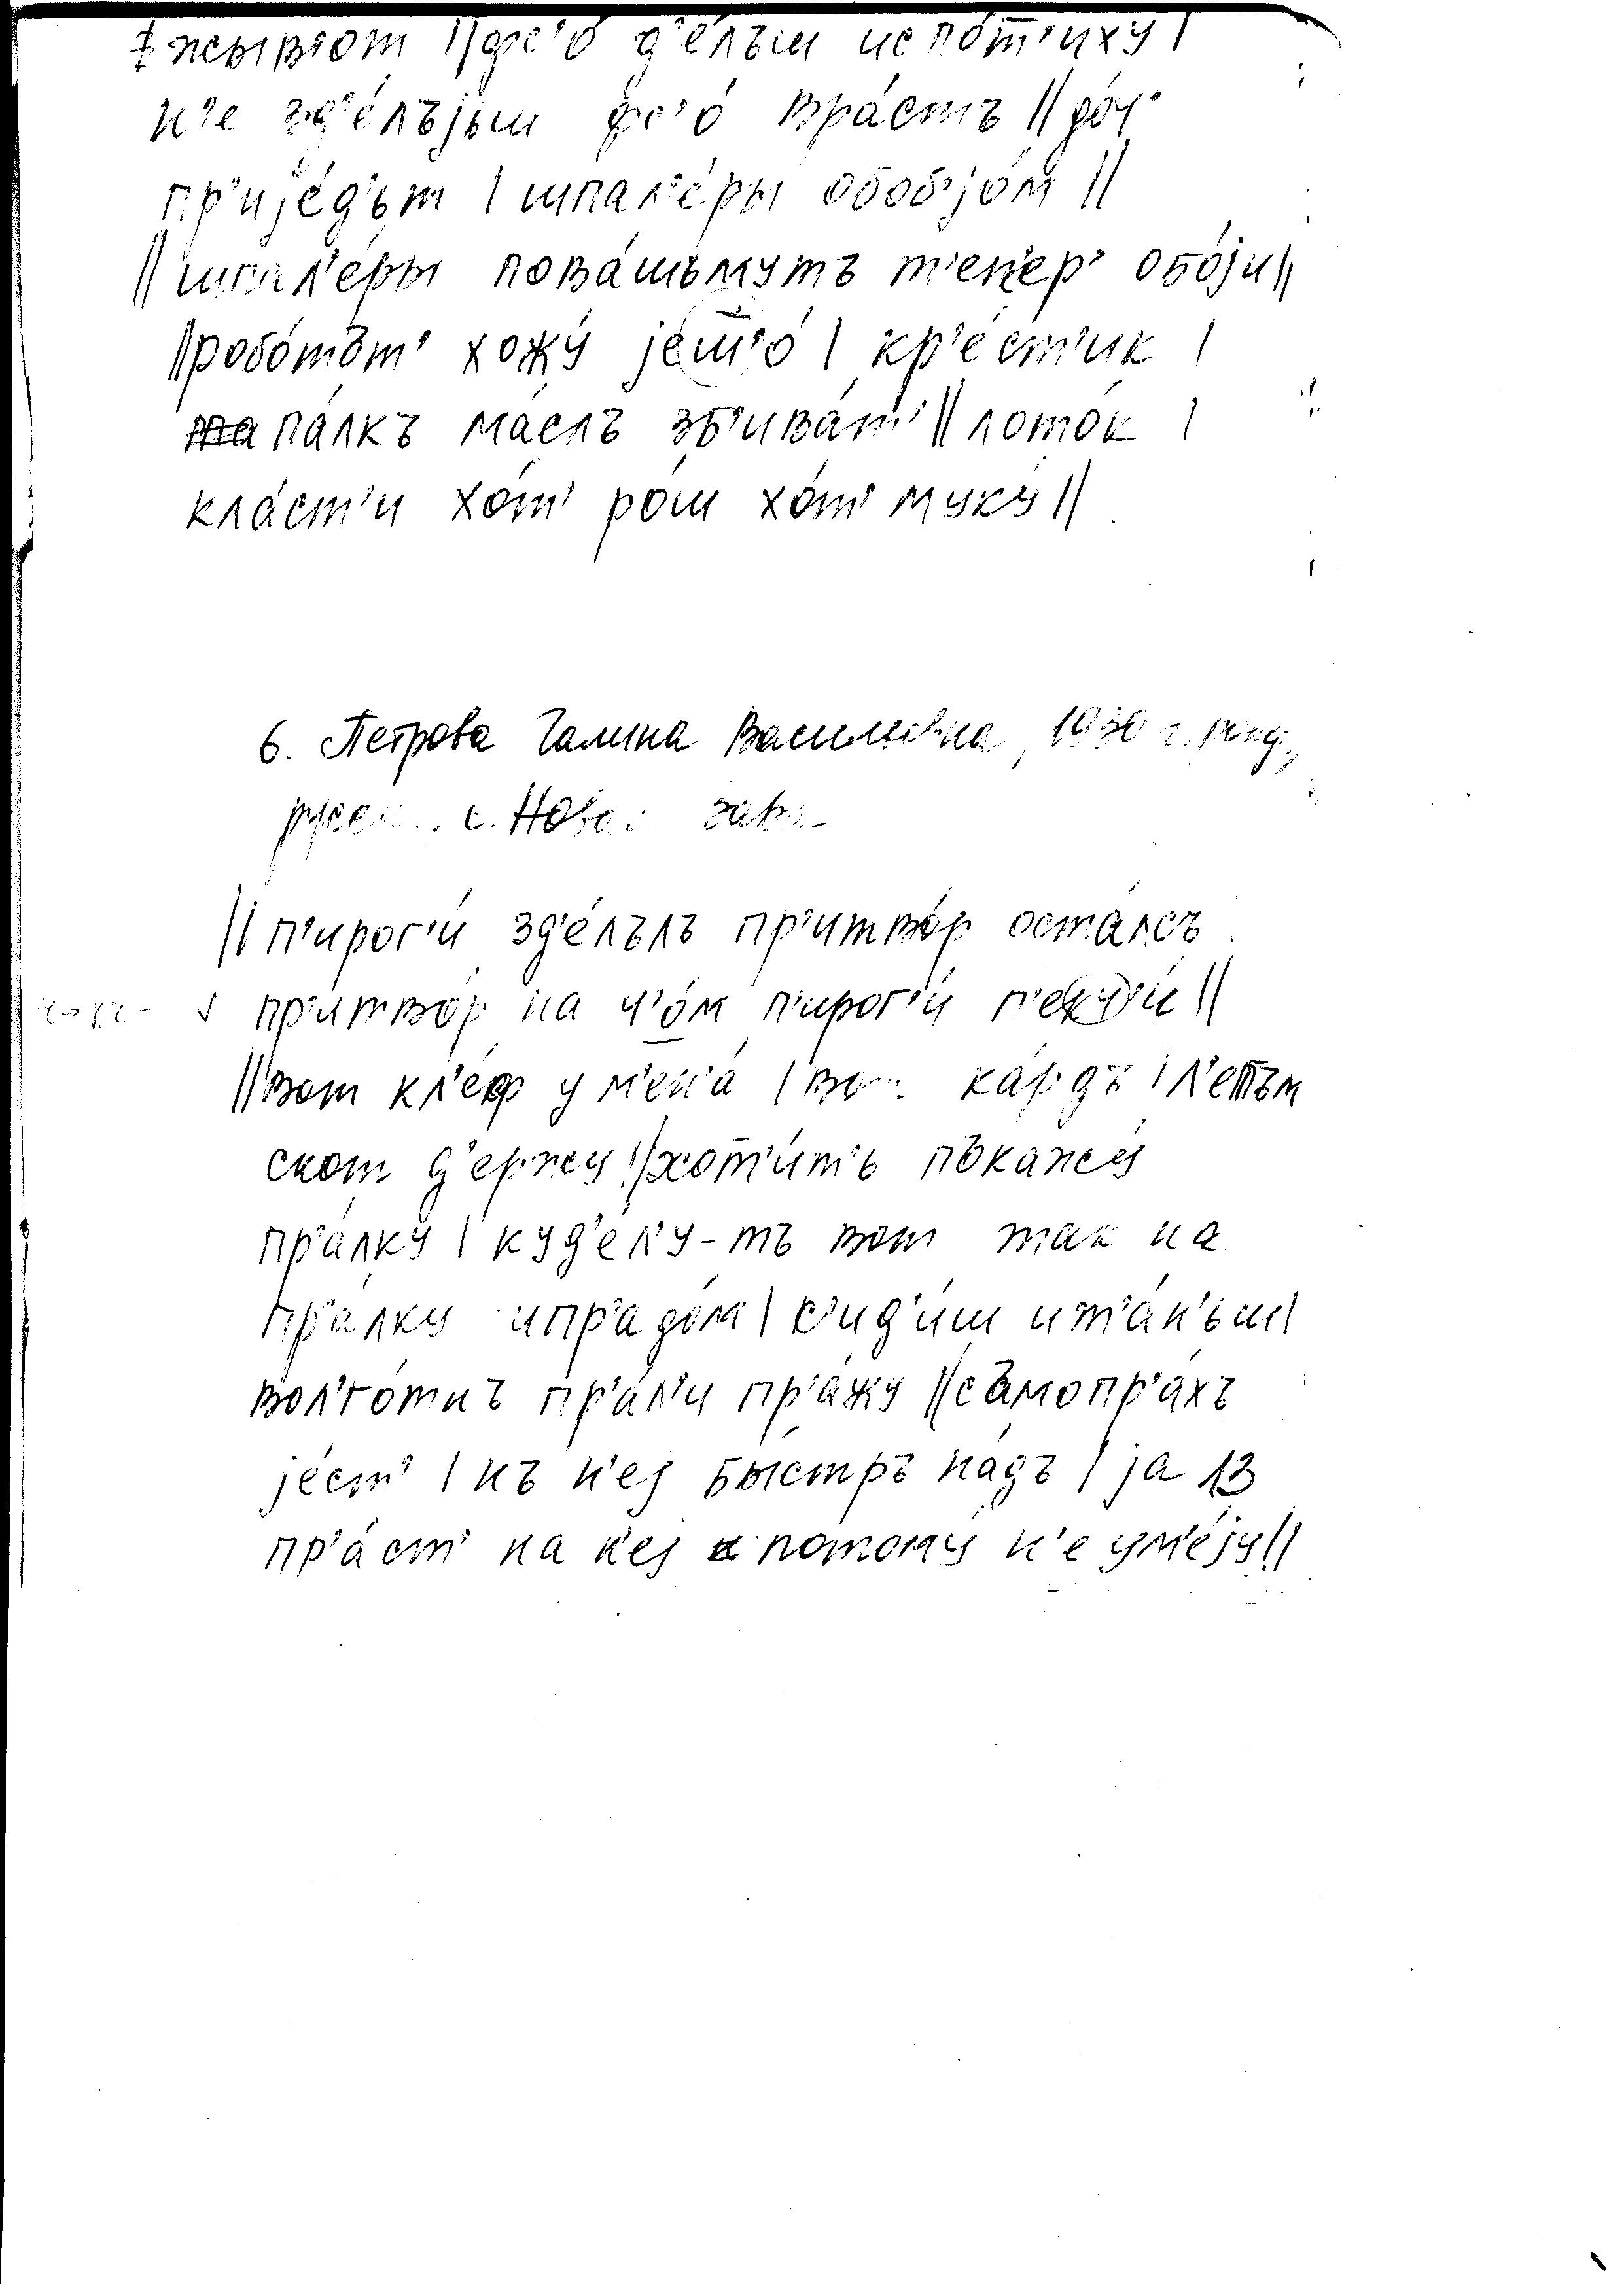 жывут || фс'о́ д'е́лъш испо́т'иху |
н'е зд'е́лъjьш фс'о́ вра́стъ || до́ч'
пр'иjе́д'ът | шпал'е́ры обобjо́м ||
|| шпал'е́ры пова́шъмутъ т'епе́р' обо́jи ||
|| робо́тът' хожу́ jеш'о́ | кр'е́ст'ик |
па́лкъ ма́слъ зб'ива́т' || лото́к |
кла́ст'и хо́т' ро́ш хо́т' муку́ ||
6. Петрова Галина Васильевна, 1930 г. рожд.,
русск., с. Новая
|| п'ирог'и́ зд'е́лълъ пр'итво́р оста́лсъ
пр'итво́р на ч'о́м п'ирог'и́ п'еку́т'и ||
|| вот кл'еф у м'ен'а́ | вот ка́рдъ | л'е́тъм
скот д'ержу́ || хот'и́т'ь пъкажу́
пр'а́лку | куд'е́л'у-тъ вот так на
пр'а́лку и пр'ад'о́м | с'ид'и́ш и т'а́н'ьш |
вол'го́тнъ пр'а́л'и пр'а́жу || съмопр'а́хъ
jе́ст' | нъ н'еj бы́стръ на́дъ | jа 13
пр'а́ст' на н'еj потому́ н'е ум'е́jу ||